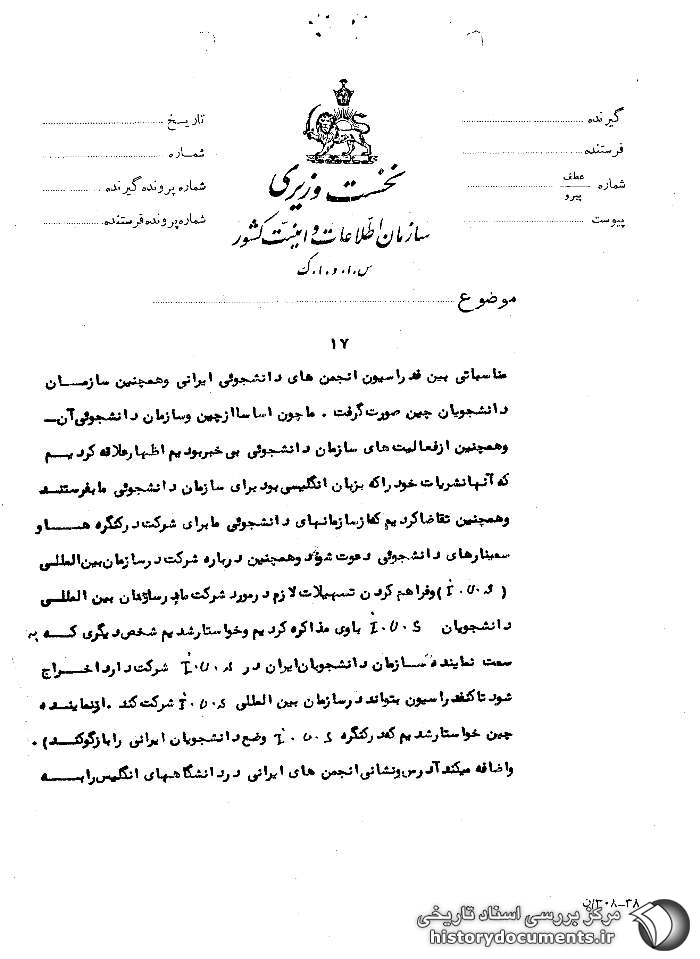 گیرنده
فرستنده
شماره عطف
پیرو
پیوست
تاریخ
شماره
شماره پرونده گیرنده
شماره پرونده فرستنده
نخست وزیری
سازمان اطلاعات و امنیت کشور
س.ا.و.ا.ک
موضوع
۱۷
مناسباتی بین فدراسیون انجمن های دانشجوئی ایرانی وهمچنین سازمان
دانشجویان چین صورت گرفت . ماچون اساسا ازچین وسازمان دانشجوئی آن
وهمچنین ازفعالیت های سازمان دانشجوئی بی خبربودیم اظهارعلاقه کردیم
که آنها نشریات خود راکه بزبان انگلیسی بود برای سازمان دانشجوئی مابفرستند
وهمچنین تقاضاکردیم که ازسازمانهای دانشجوئی مابرای شرکت درکنگره هاو
سمینارهای دانشجوئی دعوت شود وهمچنین درباره شرکت درسازمان بین المللی
( I.U.S ) وفراهم کردن تسهیلات لازم درمورد شرکت مادرسازمان بین المللی
دانشجویان I.U.S باوی مذاکره کردیم وخواستارشدیم شخص دیگری که به
سمت نماینده سازمان دانشجویان ایران در I.U.S شرکت دارد اخراج
شود تاکنفدراسیون بتواند درسازمان بین المللی I.U.S شرکت کند . ازنماینده
چین خواستارشدیم که درکنگره I.U.S وضع دانشجویان ایرانی رابازگوکند) .
واضافه میکند آدرس ونشانی انجمن های ایرانی دردانشگاههای انگلیس رابه
۳۸-۳۰۸/ن
مرکز بررسی اسناد تاریخی
historydocuments.ir